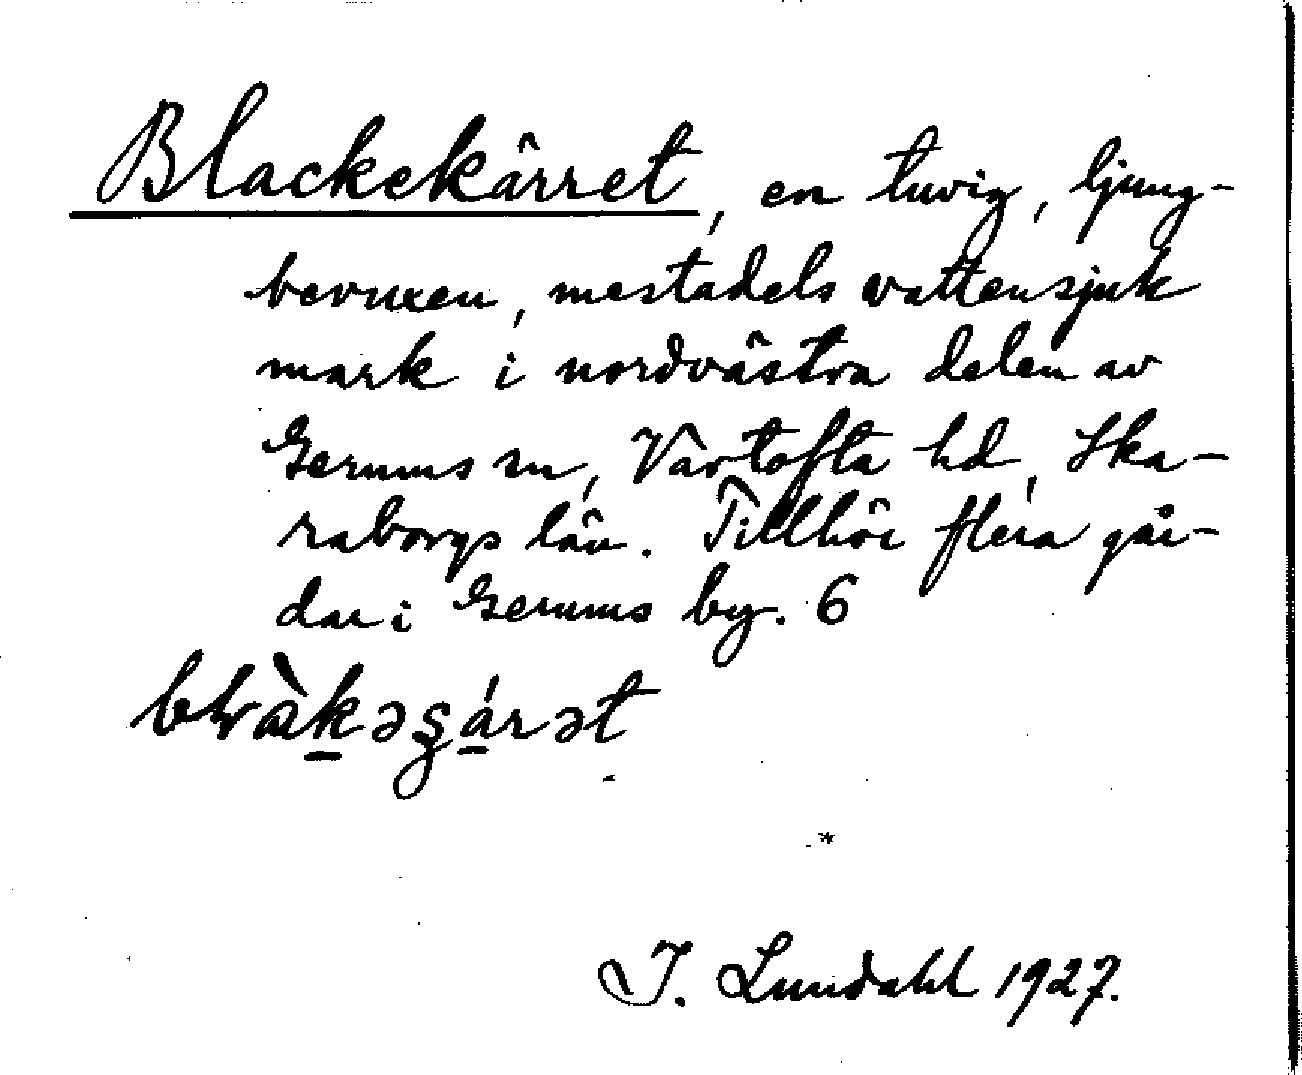 Blackekärret, en tuvig, ljung-
bevuxen, mestadels vattensjuk
mark i nordvästra delen av
Gerums sn, Vartofta hd, Ska-
raborgs län. Tillhör flera går-
dar i Gerums by. 6
J. Lundahl 1927.